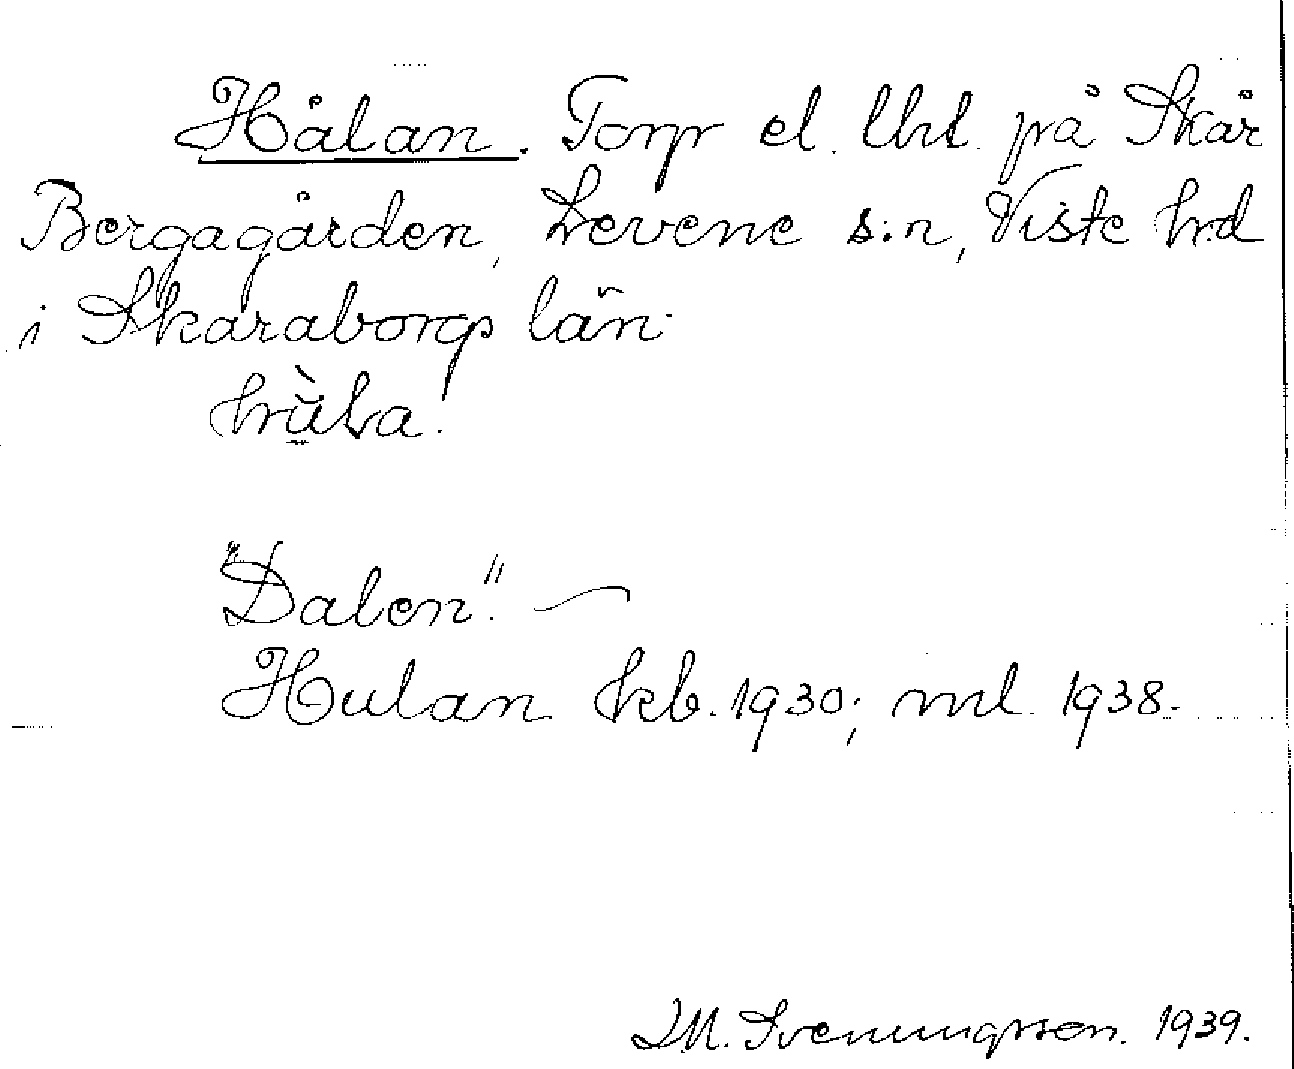 Hålan. Torp el. lht. på Skår
Bergagården, Levene s:n, Viste hd
i Skaraborgs län.
"Dalen".
Hulan kb. 1930; ml. 1938.
M. Svenungsson. 1939.